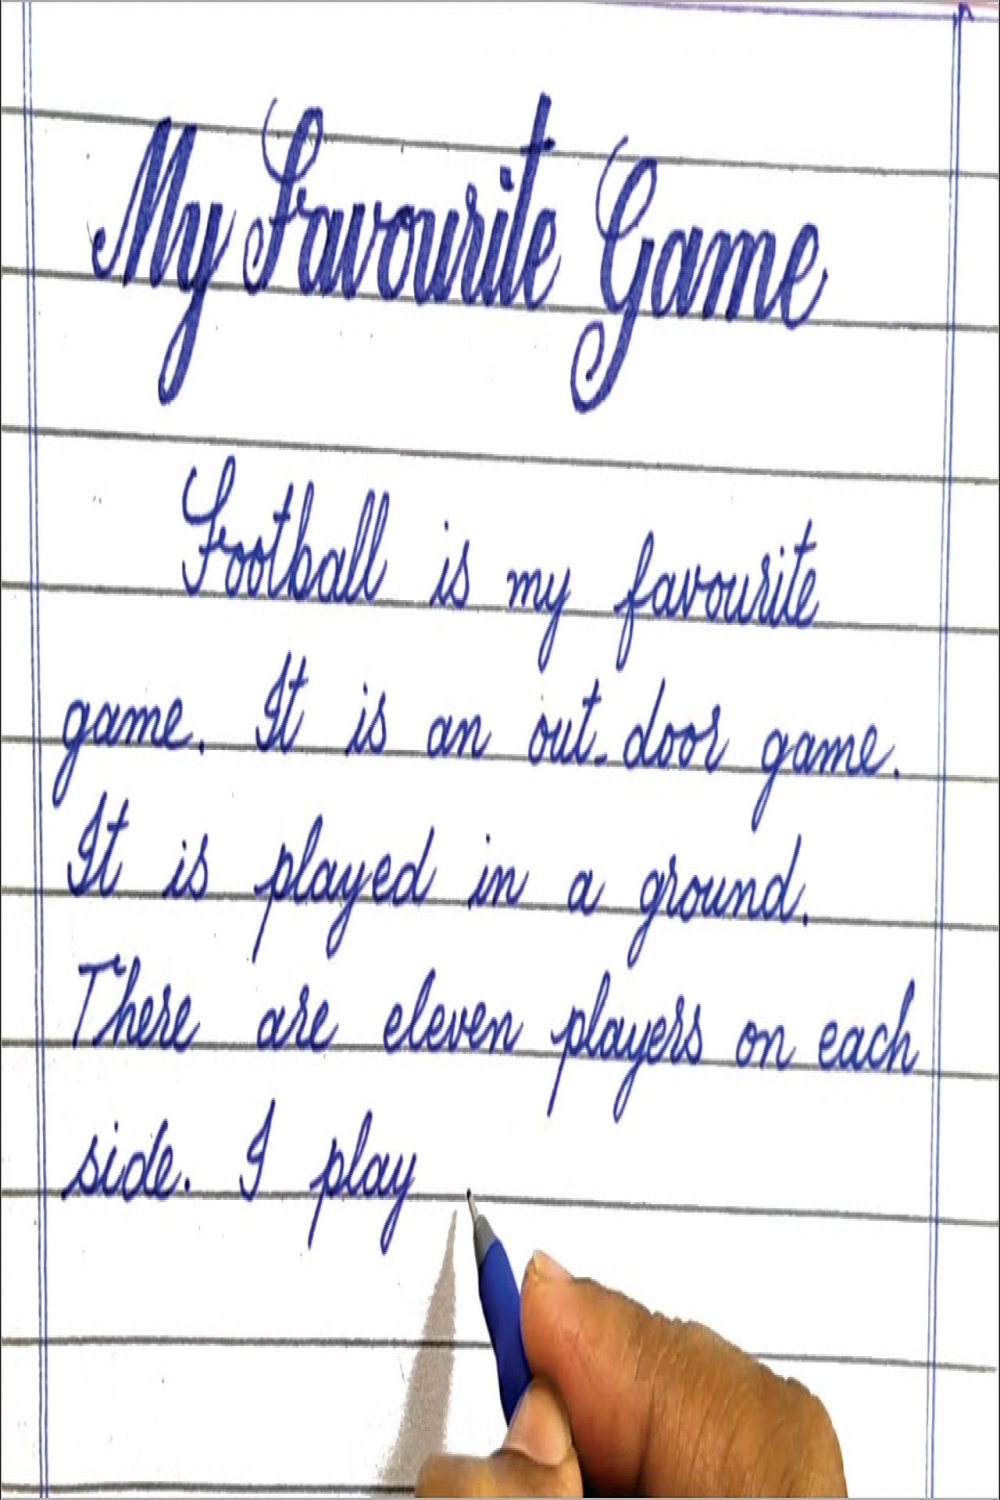 My Favourite Game
Football is my favourite
game. It is an out-door game.
It is played in a ground.
There are eleven players on each
side. I play